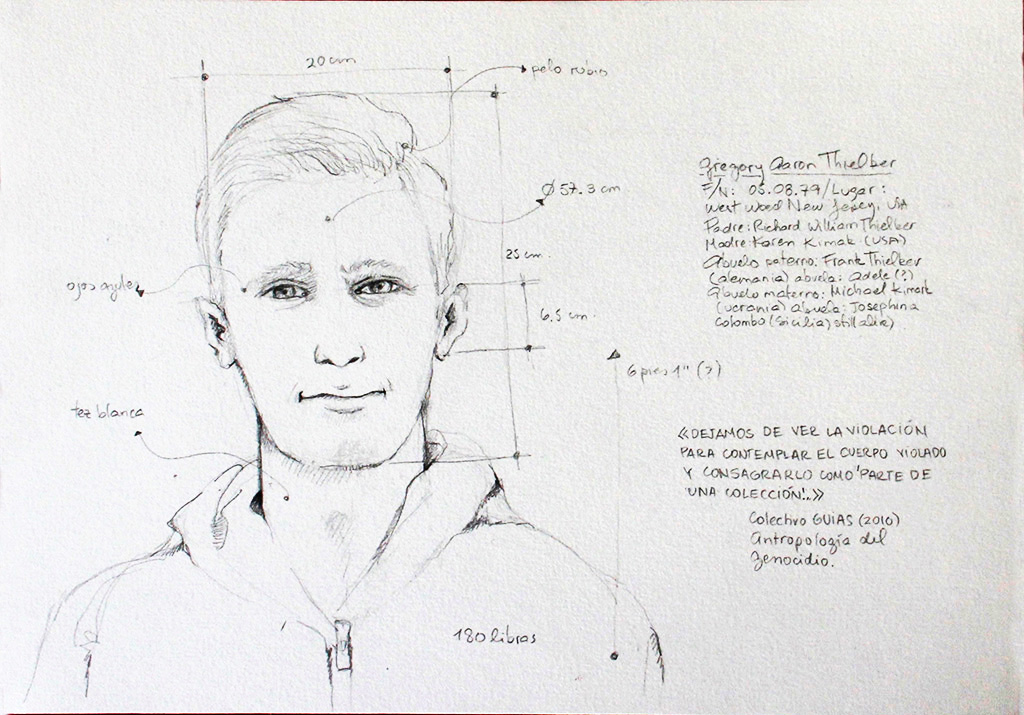 20 cm
pelo rubio
Ø 57.3 cm
25 cm.
ojos azules
6.5 cm.
6 pies 1" (?)
tez blanca
180 libras
Gregory Aaron Thielker
F/N: 05.08.79/Lugar:
West Wood New Jersey, USA
Padre: Richard William Thielker
Madre: Karen Kimak (USA)
Abuelo paterno: Frank Thielker
(alemania) abuela: Adele (?)
Abuelo materno: Michael Kimak
(ucrania) abuela: Josephina
Colombo (Sicilia)
«DEJAMOS DE VER LA VIOLACIÓN
PARA CONTEMPLAR EL CUERPO VIOLADO
Y CONSAGRARLO COMO 'PARTE DE
UNA COLECCIÓN'..»
Colectivo GUIAS (2010)
Antropología del
Genocidio.